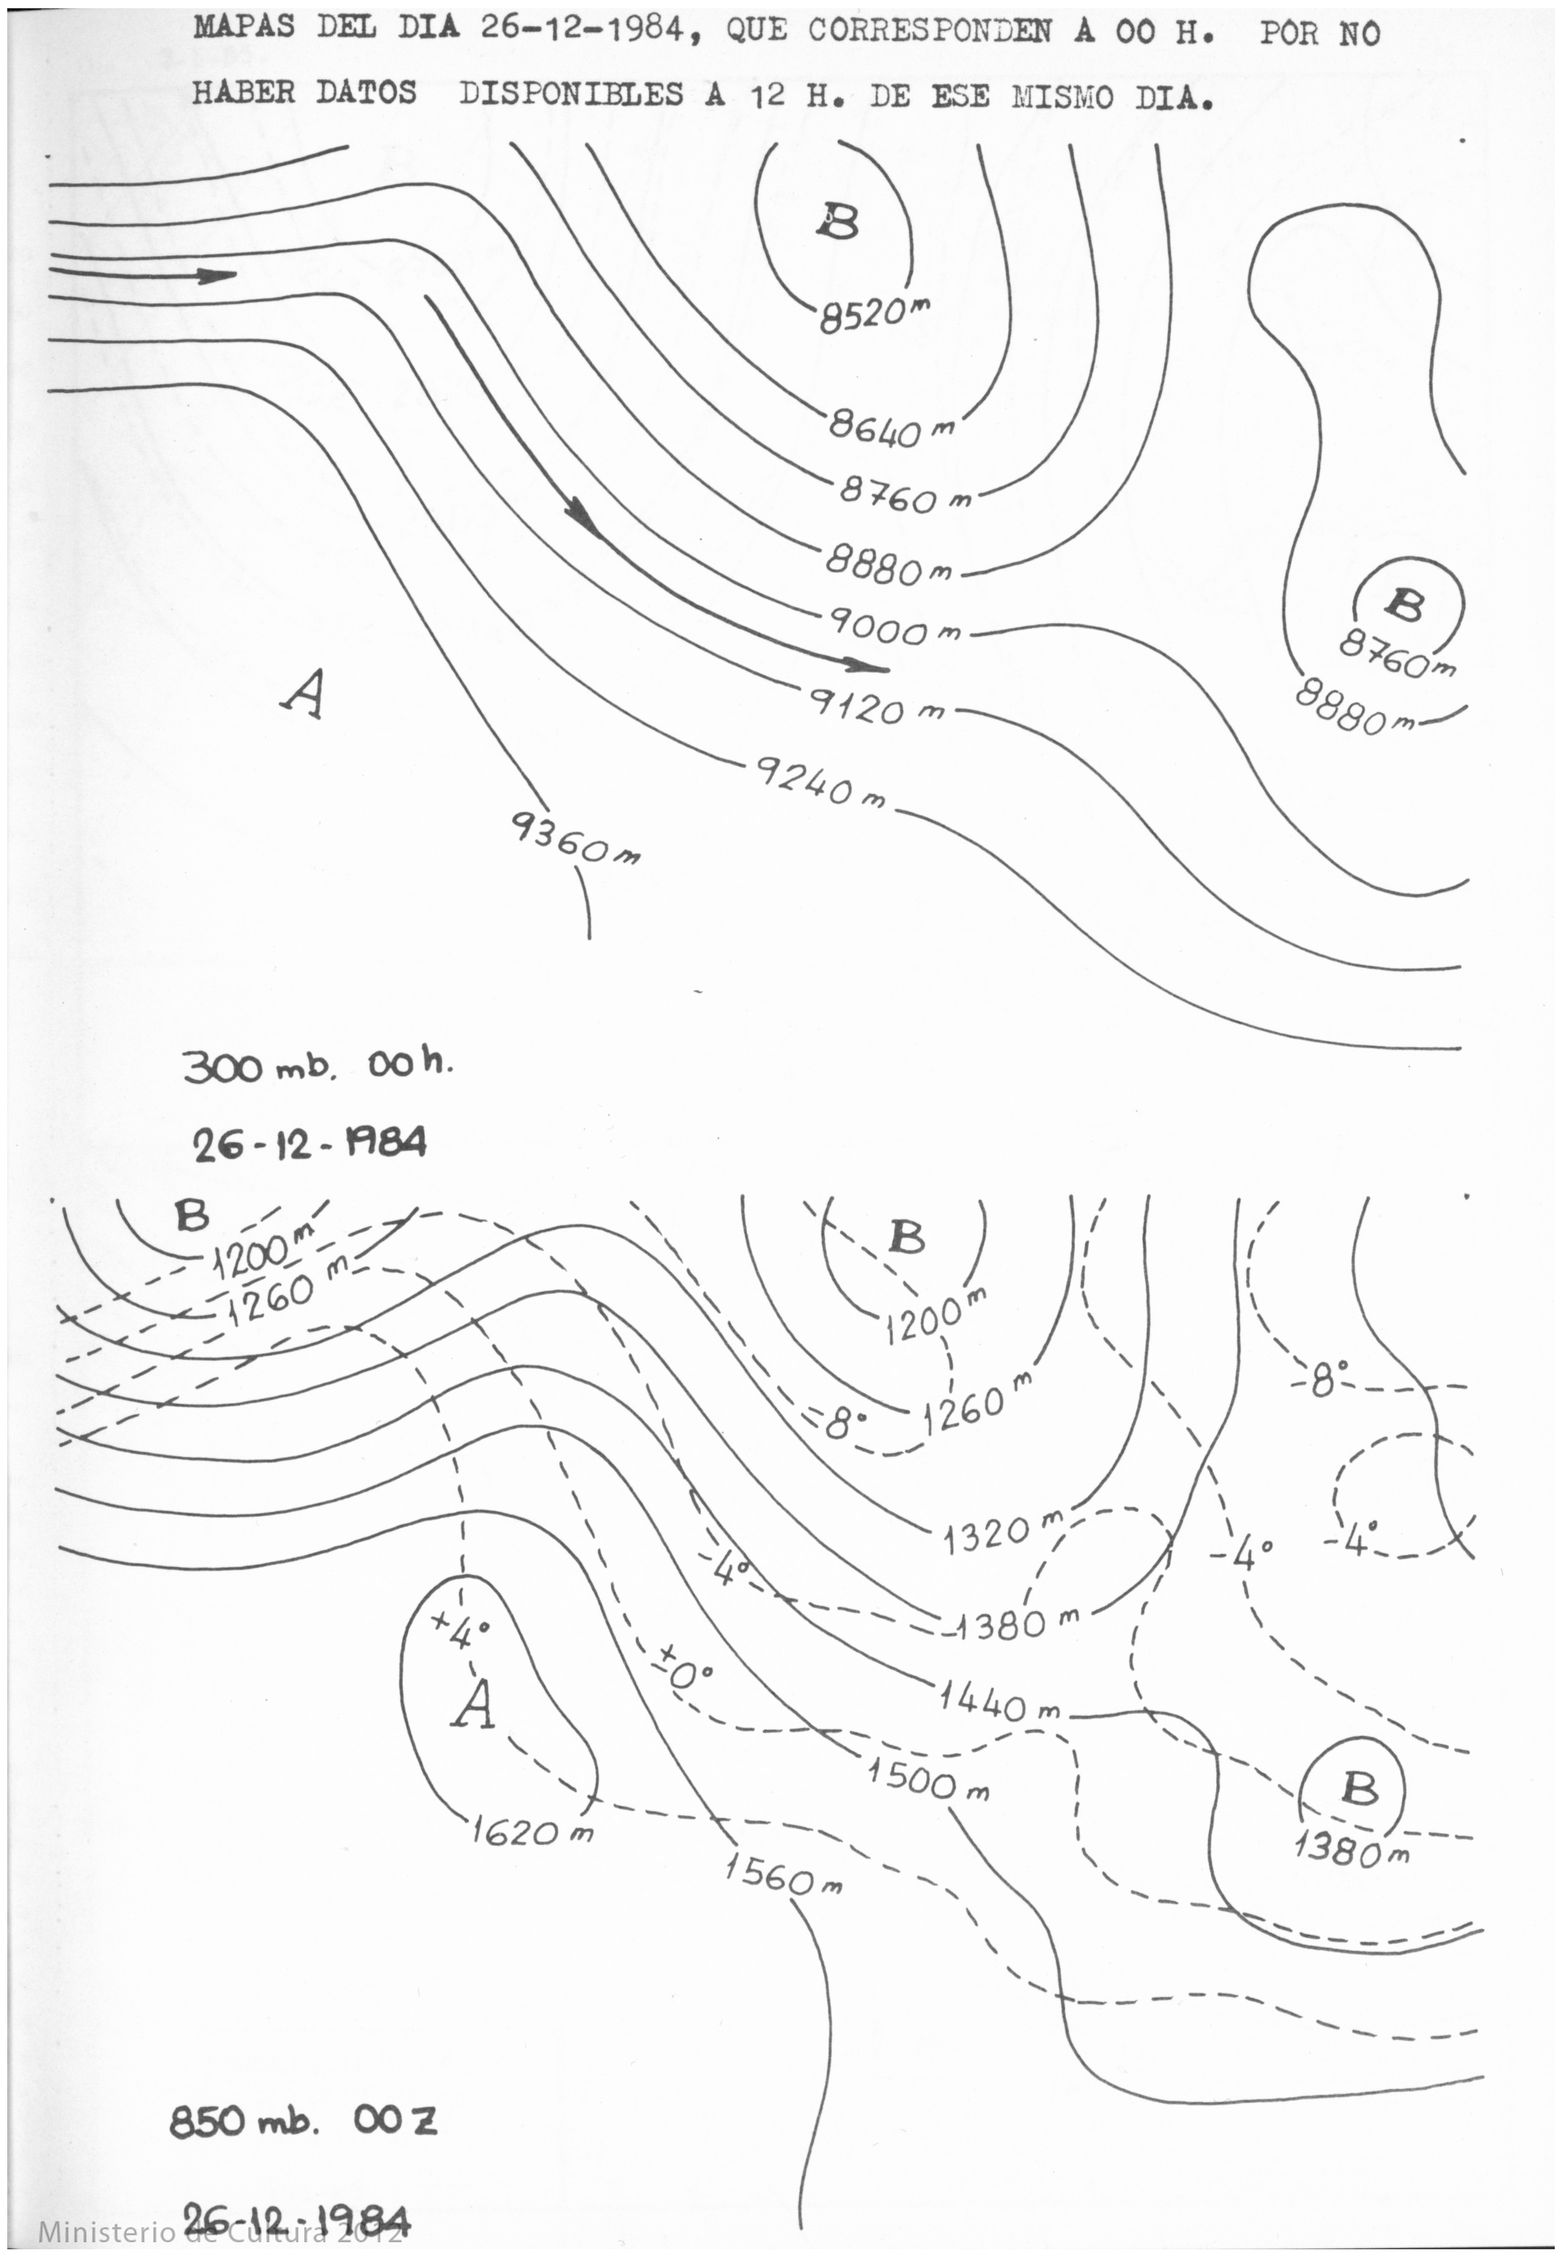 MAPAS DEL DIA 26-12-1984, QUE CORRESPONDEN A 00 H. POR NO
HABER DATOS DISPONIBLES A 12 H. DE ESE MISMO DIA.
B
8520 m
8640 m
8760 m
8880 m
9000 m
B
8760 m
8880 m
A
9120 m
9240 m
9360 m
300 mb. 00 h.
26-12-1984
B
1200 m
1260 m
B
1200 m
1260 m
-8°
-8°
1320 m
-4°
-4°
-4°
1380 m
+4°
±0°
A
1440 m
1500 m
B
1380 m
1620 m
1560 m
850 mb. 00 Z
26-12-1984
Ministerio de Cultura 2012